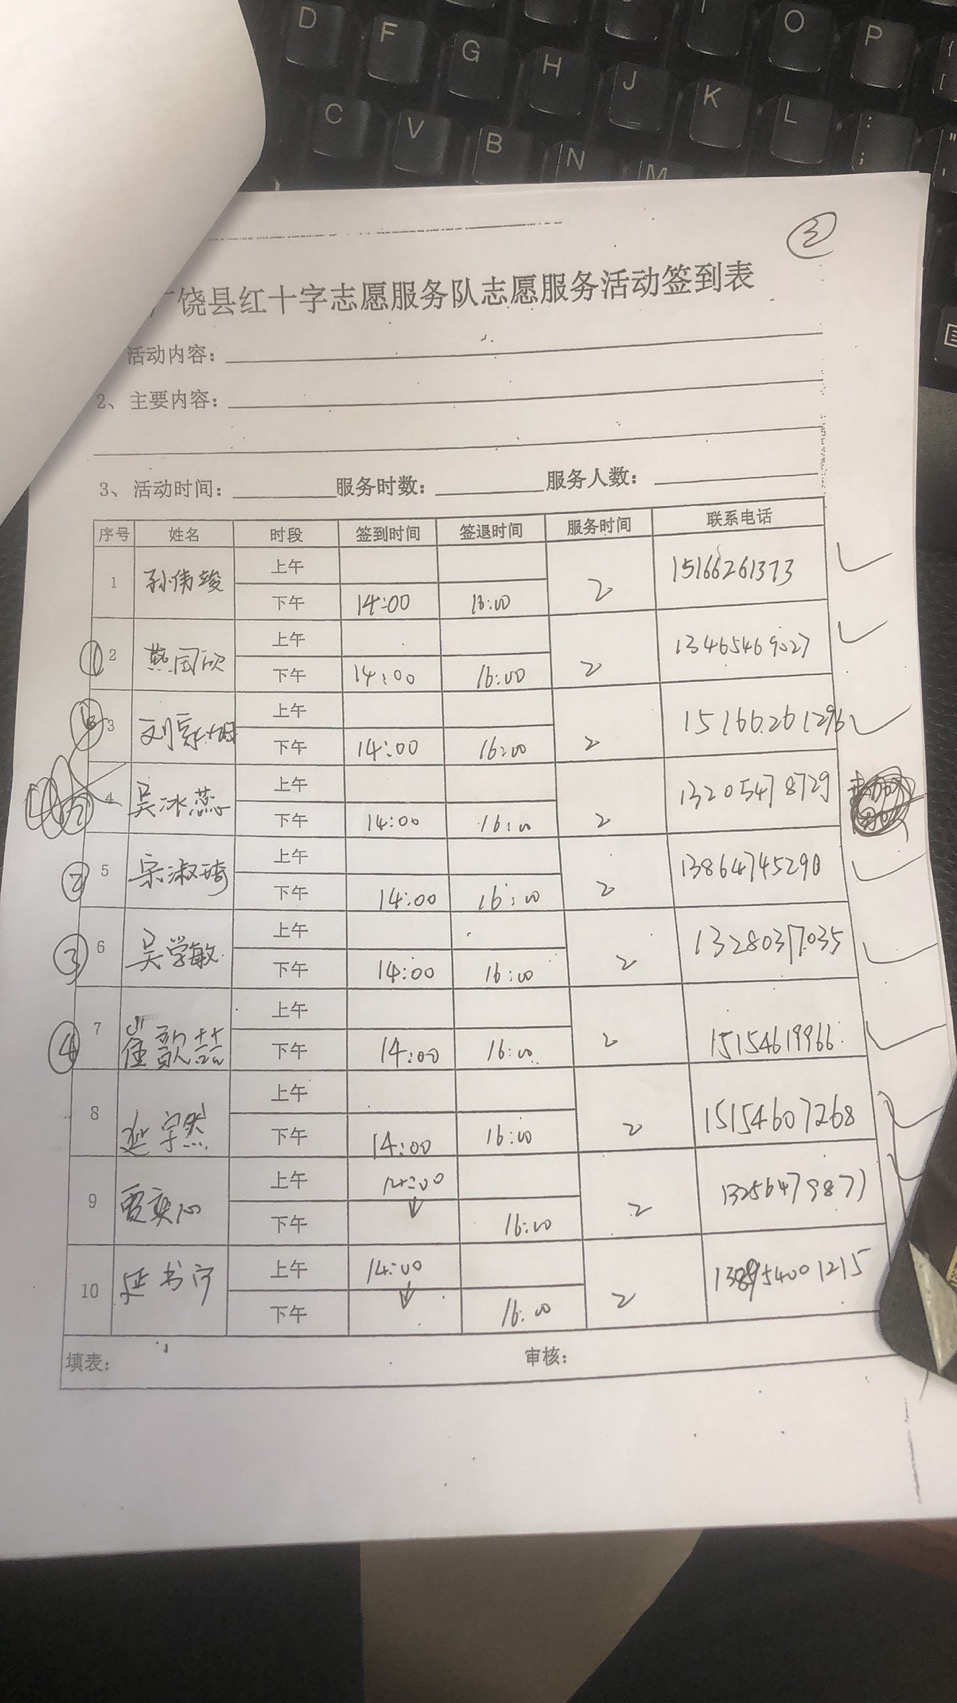 D F G H J K L O P
C V B N M
③
广饶县红十字志愿服务队志愿服务活动签到表
活动内容：
2、 主要内容：
3、 活动时间： 服务时数： 服务人数：
序号 姓名 时段 签到时间 签退时间 服务时间 联系电话
1 孙伟竣 上午 2 15166261373
下午 14:00 16:00
① 2 燕国欣 上午 2 13465469027
下午 14:00 16:00
3 上午 2 15166261296
下午 14:00 16:00
4 吴冰蕊 上午 2 13205478729
下午 14:00 16:00
② 5 宗淑琦 上午 2 13864745290
下午 14:00 16:00
③ 6 吴学敏 上午 2 13280317035
下午 14:00 16:00
④ 7 崔歌喆 上午 2 15154619966
下午 14:00 16:00
8 延宇然 上午 2 15154607268
下午 14:00 16:00
9 贾奕心 上午 14:00 2 13256479877
下午 16:00
10 延书宁 上午 14:00 2
下午 16:00
填表： 审核：